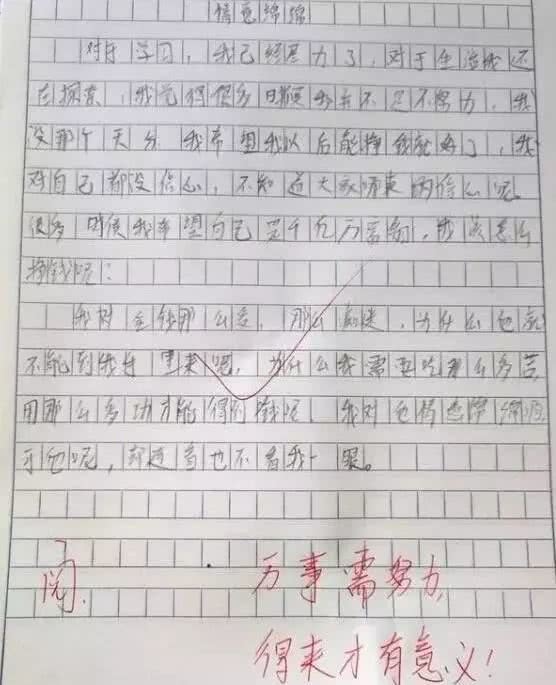 情意绵绵
对于学习,我已经尽力了,对于生活我还
在探索,我觉得很多时候我并不是不努力,我
没那个天分 我希望我以后能挣钱就好了,我
对自己都没信心,不知道大家哪来的信心呢
很多时候我希望自己是千亿万富翁,我该怎么
挣钱呢:
我对金钱那么爱,那么痴迷,为什么他就
不能到我手里来呢,为什么我需要吃那么多苦
用那么多功才能得到钱呢 我对他情意绵绵
可他呢,却连看也不看我一眼。
阅.
万事需努力,
得来才有意义!